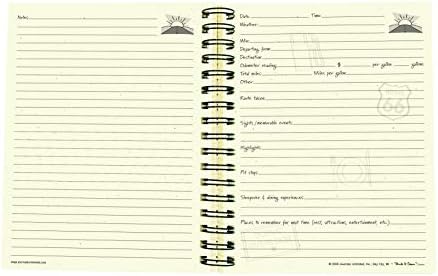 Notes:
Date: Time:
Weather:
Who:
Departing from:
Destination:
Odometer reading: $ per gallon gallons
Total miles: Miles per gallon
Other:
Route taken:
66
Sights/memorable events:
Highlights:
Pit stops:
Sleepover & dining experiences:
Places to remember for next time (rest, attractions, entertainment, etc.)